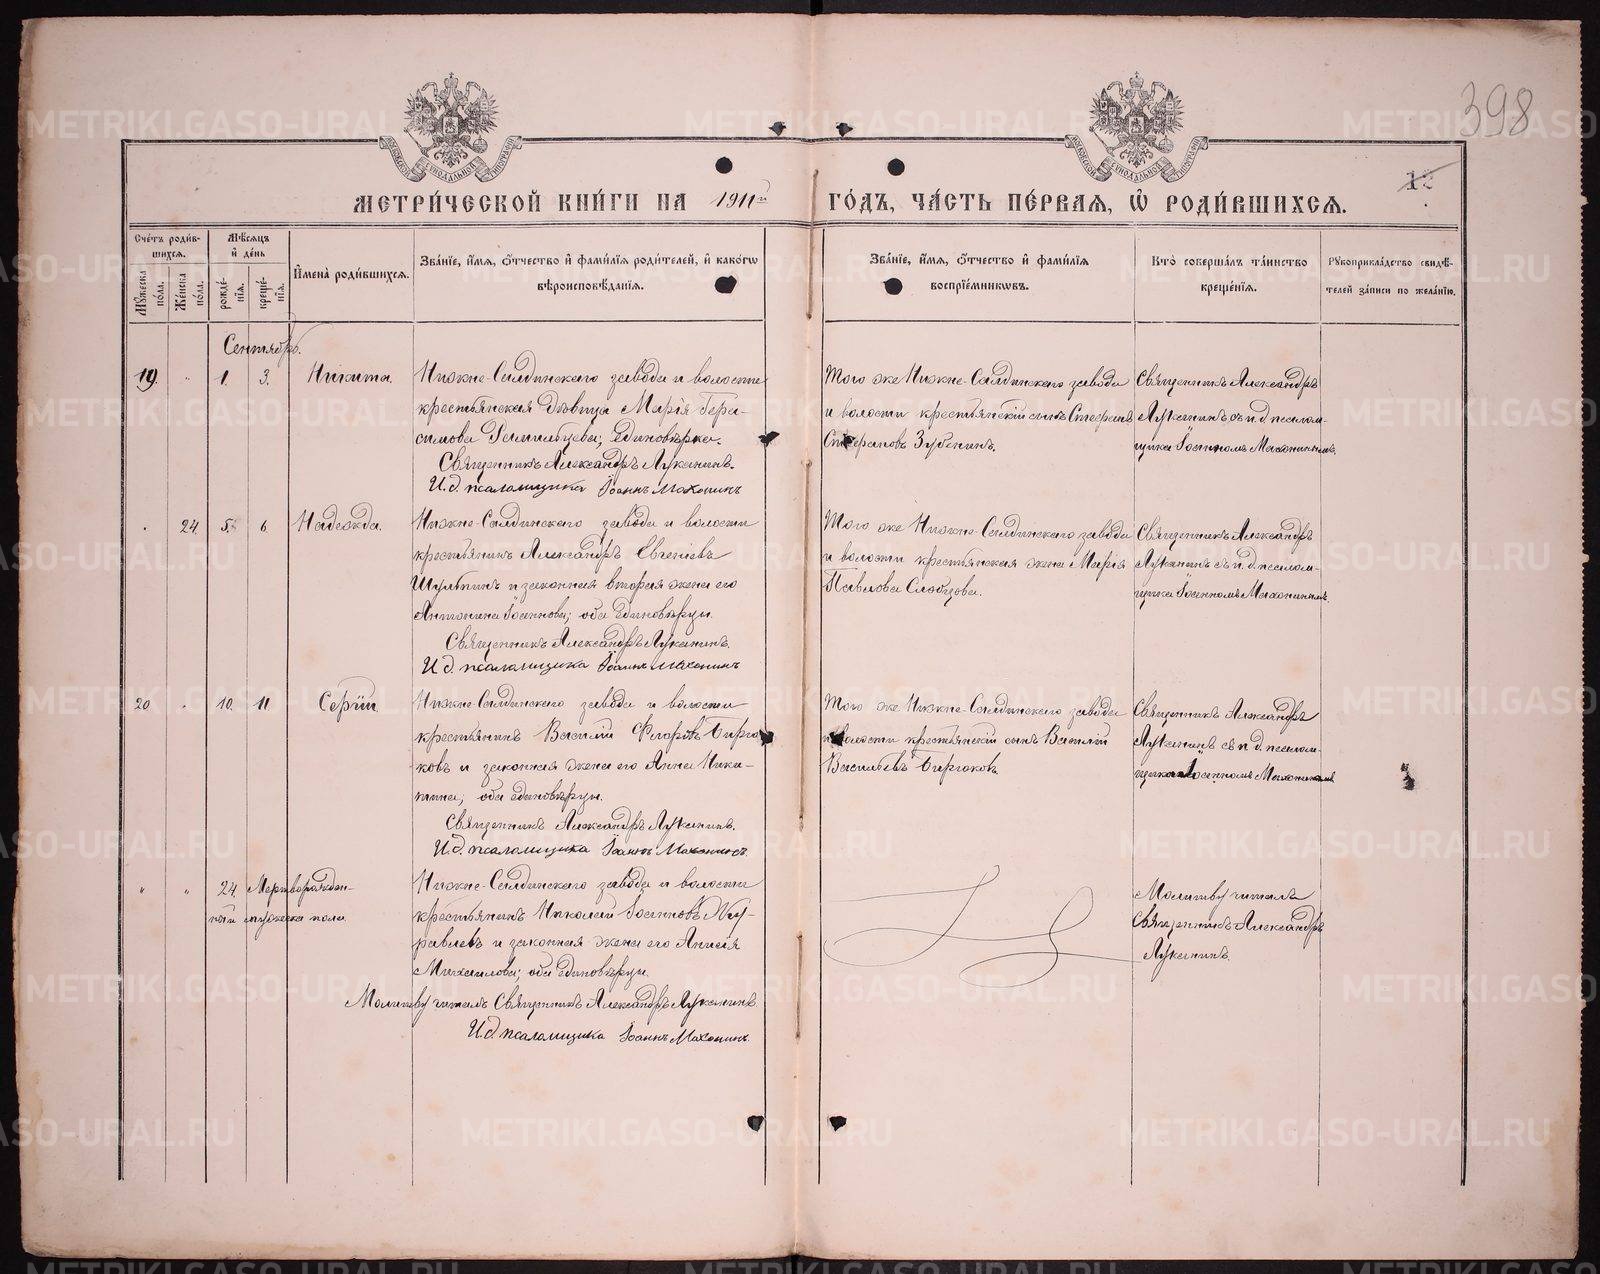 398
12
МЕТРИ́ЧЕСКОЙ КНИ́ГИ НА 1911й ГО́ДЪ, ЧА́СТЬ ПЕ́РВАЯ, Ѡ҆ РОДИ́ВШИХСЯ.
Сче́тъ роди́в-
шихся.
Мꙋ́жеска по́ла.
Же́нска по́ла.
Мѣ́сяцъ и҆ де́нь
рожде́-
нїя.
креще́-
нїя.
И҆мена̀ роди́вшихся.
Зва́нїе, и҆́мя, ѻ҆́тчество и҆ фами́лїя роди́телей, и҆ како́гѡ
вѣроисповѣ́данїя.
Зва́нїе, и҆́мя, ѻ҆́тчество и҆ фами́лїя
воспрїе́мникѡвъ.
Кто̀ соверша́лъ та́инство
креще́нїя.
Рꙋкоприкла́дство свидѣ́-
телей за́писи по жела́нїю.
Сентябрь.
19. " 1. 3. Никита.
Нижне-Салдинскаго завода и волости
крестьянская дѣвица Марія Гера-
симова единовѣрка.
Священникъ Александръ Луканинъ.
И.д. псаломщика Іоаннъ Махонинъ
Того же Нижне-Салдинскаго завода
и волости крестьянскій сынъ Стефанъ
Стефановъ Зубенинъ.
Священникъ Александръ
Луканинъ съ и.д. псалом-
щика Іоанномъ Махонинымъ.
" 24. 5. 6. Надежда.
Нижне-Салдинскаго завода и волости
крестьянинъ Александръ Евгеніевъ
Шульпинъ и законная вторая жена его
Антонина Іоаннова; оба единовѣрцы.
Священникъ Александръ Луканинъ.
И.д. псаломщика Іоаннъ Махонинъ
Того же Нижне-Салдинскаго завода
и волости крестьянская жена Марія
Павлова Слобцова.
Священникъ Александръ
Луканинъ съ и.д. псалом-
щика Іоанномъ Махонинымъ.
20. " 10. 11. Сергій.
Нижне-Салдинскаго завода и волости
крестьянинъ Василій Флоровъ Бирю-
ковъ и законная жена его Анна Ники-
тина; оба единовѣрцы.
Священникъ Александръ Луканинъ.
И.д. псаломщика Іоаннъ Махонинъ
Того же Нижне-Салдинскаго завода
и волости крестьянскій сынъ Василій
Васильевъ Бирюковъ.
Священникъ Александръ
Луканинъ съ и.д. псалом-
щика Іоанномъ Махонинымъ
" " 24. Мертворожден-
ный мужеска пола.
Нижне-Салдинскаго завода и волости
крестьянинъ Николай Іоанновъ Жу-
равлевъ и законная жена его Анисія
Михаилова; оба единовѣрцы.
Молитву читалъ Священникъ Александръ Луканинъ.
И.д. псаломщика Іоаннъ Махонинъ.
Молитву читалъ
Священникъ Александръ
Луканинъ.
METRIKI.GASO-URAL.RU